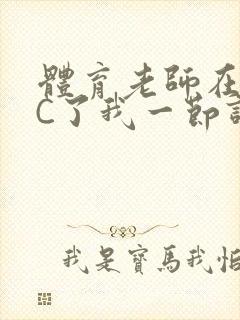 體育老師在
C了我一節
我是寶馬我怕